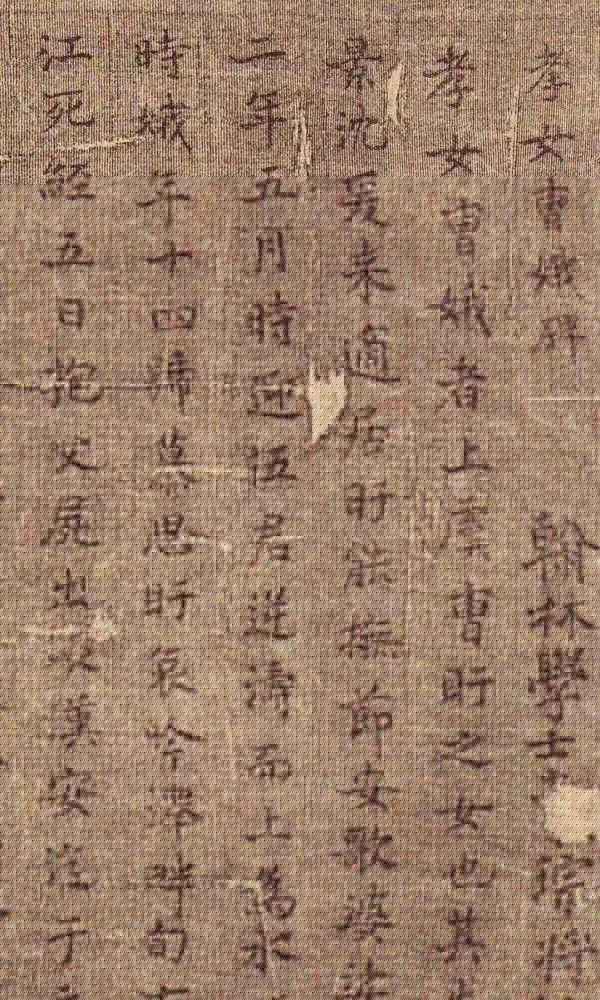 孝女曹娥碑
翰林學士
孝女曹娥者上虞曹盱之女也其
景沉爰来適居盱能撫節安歌婆
二年五月時迎伍君逆濤而上為水
時娥年十四號慕思盱哀吟澤畔旬
江死經五日抱父屍出以漢安迄于